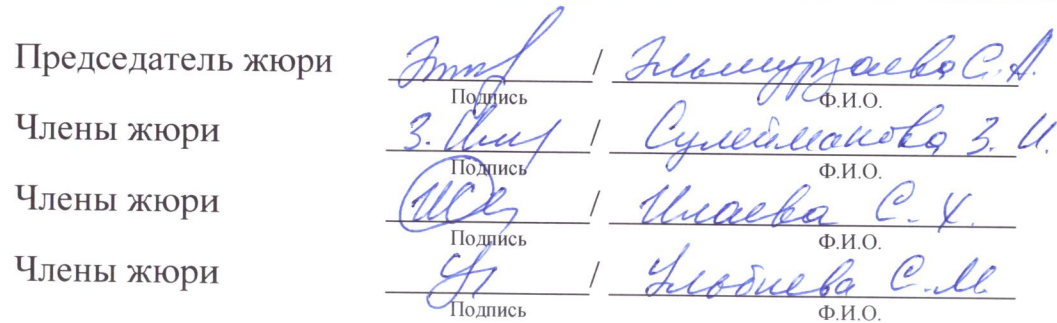 Председатель жюри / Эльмурзаева С.А.
Подпись Ф.И.О.
Члены жюри З. / Сулейманова З. И.
Подпись Ф.И.О.
Члены жюри / Илаева С. Х.
Подпись Ф.И.О.
Члены жюри / С.М.
Подпись Ф.И.О.